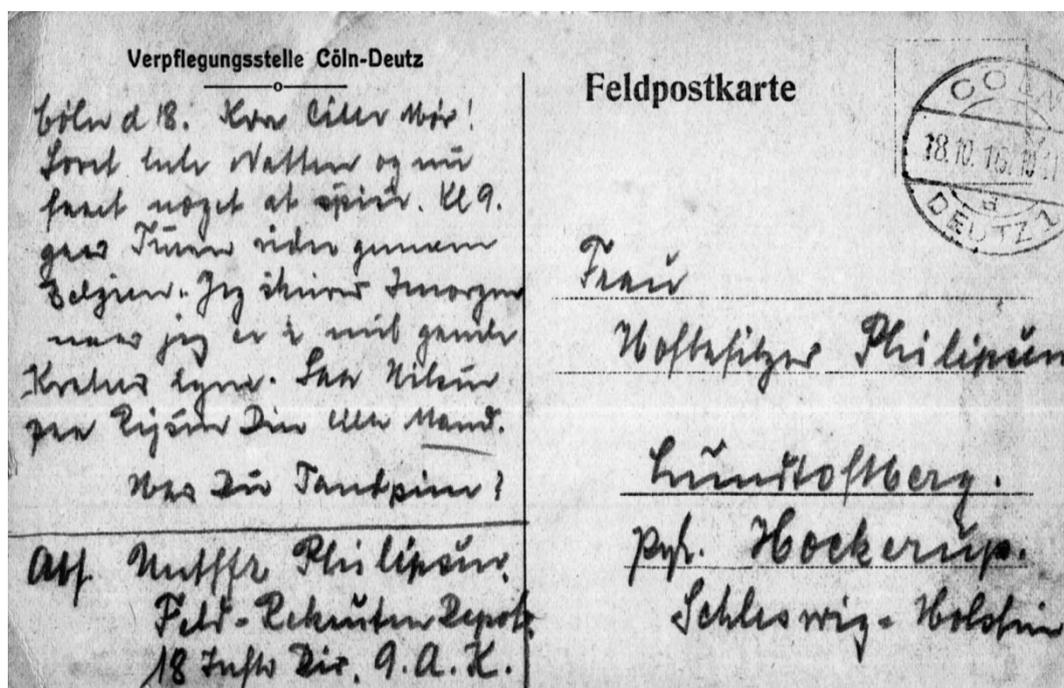 Verpflegungsstelle Cöln-Deutz
Cöln d 18. Kære lille Mor!
Sovet hele Natten og nu
faaet noget at spise. Kl 9.
gaar Turen videre gennem
Belgien. Jeg skriver Imorgen
naar jeg er i mit gamle
igen. Saa Hilsen
paa Rejsen Din lille Mand.
Har Du Tandpine?
Abs. Philipsen.
Feld-Rekruten Depot.
18 Inftr Div. 9.A.K.
Feldpostkarte
CÖLN
18.10.16.
DEUTZ 1
Frau
Hofbesitzer Philipsen
Lundtoftberg.
Hockerup.
Schleswig-Holstein